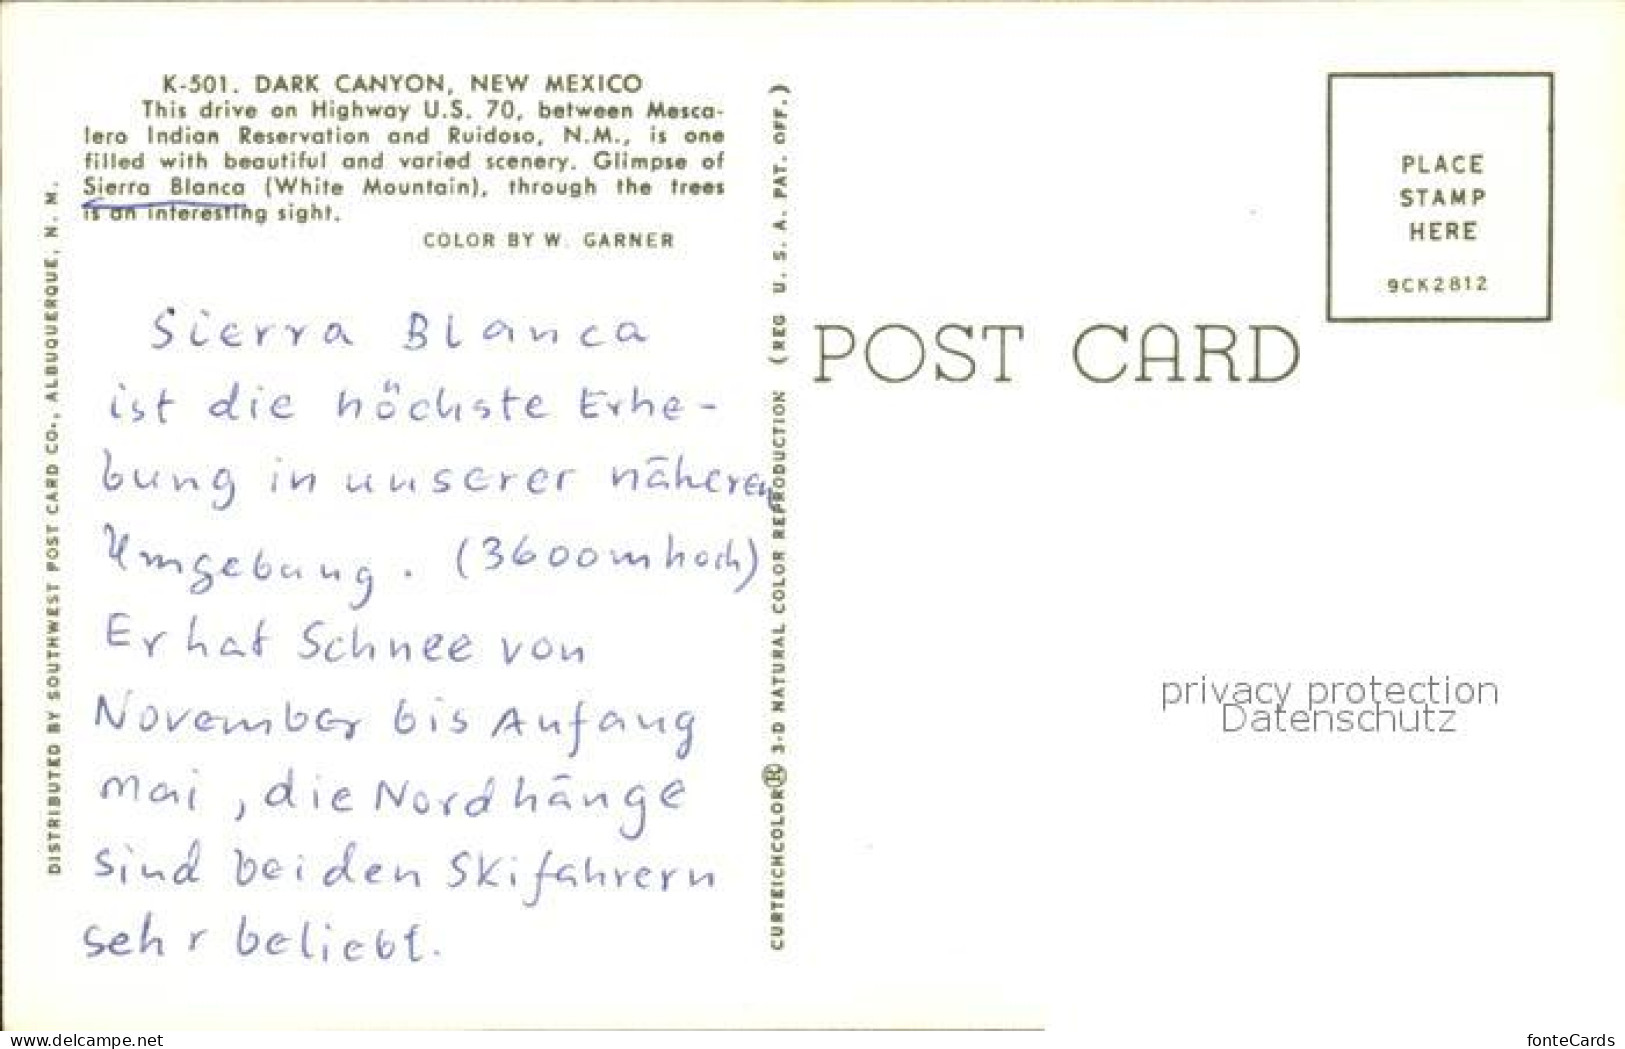 K-501. DARK CANYON, NEW MEXICO
This drive on Highway U.S. 70, between Mesca-
lero Indian Reservation and Ruidoso, N.M., is one
filled with beautiful and varied scenery. Glimpse of
Sierra Blanca (White Mountain), through the trees
is an interesting sight.
COLOR BY W. GARNER
Sierra Blanca
ist die höchste Erhe-
bung in unserer näheren
Umgebung. (3600m hoch)
Er hat Schnee von
November bis Anfang
Mai, die Nordhänge
sind bei den Skifahrern
sehr beliebt.
DISTRIBUTED BY SOUTHWEST POST CARD CO., ALBUQUERQUE, N. M.
CURTEICHCOLOR® 3-D NATURAL COLOR REPRODUCTION (REG U. S. A. PAT. OFF.)
POST CARD
PLACE
STAMP
HERE
9CK2812
privacy protection
Datenschutz
www.delcampe.net
fonteCards